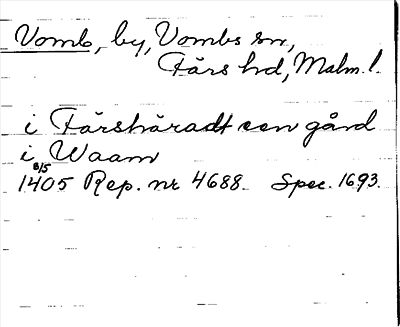 Vomb, by, Vombs sn,
Färs hd, Malm. l.
i Färshäradt een gård
i Waam
8/5
1405 Rep. nr 4688. Spec. 1693.